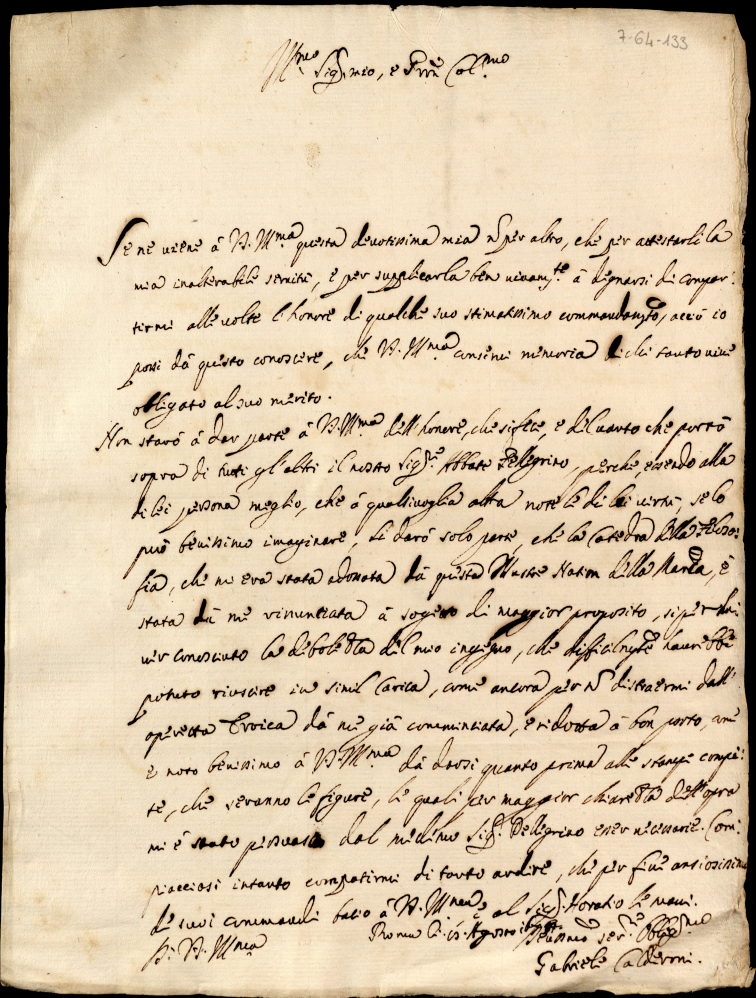 7-64-133
Ill.mo Sig.r mio, e Pron Col.mo
Se ne viene à V.S. Ill.ma questa devotissima mia nõ per altro, che per attestarli la
mia inalterabile servitù, e per supplicarla ben vivam.te à degnarsi di compar-
tirmi alle volte l'honore di qualche suo stimatissimo commandam.to, acciò io
possi da questo conoscere, che V.S. Ill.ma conservi memoria di chi tanto vive
obligato al suo merito.
Non starò à dar parte à V.S. Ill.ma dell'honore, che si fece, e del vanto che portò
sopra di tutti gl'altri il nostro Sig.re Abbate Pellegrino, perche, essendo alla
di lei persona meglio, che à qualsivoglia altra note le di lui virtù, se lo
può benissimo imaginare, li darò solo parte, che la Catedra della Filoso-
fia, che mi era stata adonata da questa Illustre Nation della Marca, è
stata da me rinuntiata à sogetto di maggior proposito, si per
ver conosciuto la debolezza del mio ingegno, che difficilm.te haurebbe
potuto riuscire in simil Carica, come ancora per nõ distraermi dall'
operetta Eroica da me già cominciata, e ridotta à bon porto, come
è noto benissimo à V.S. Ill.ma da darsi quanto prima alle stampe compi-
te, che seranno le figure, le quali per maggior chiarezza dell'opra
mi è stato persuaso dal medemo Sig.r Pellegrino esser necessarie. Com-
piacciasi intanto compatirmi di tanto ardire, che per fine ansiosissimo
de suoi commandi bacio à V.S. Ill.ma, e al Sig.r Horatio le mani.
Roma li Agosto
Di V.S. Ill.ma
Devotiss.mo ser.re Oblig.mo
Gabriele Calderoni.